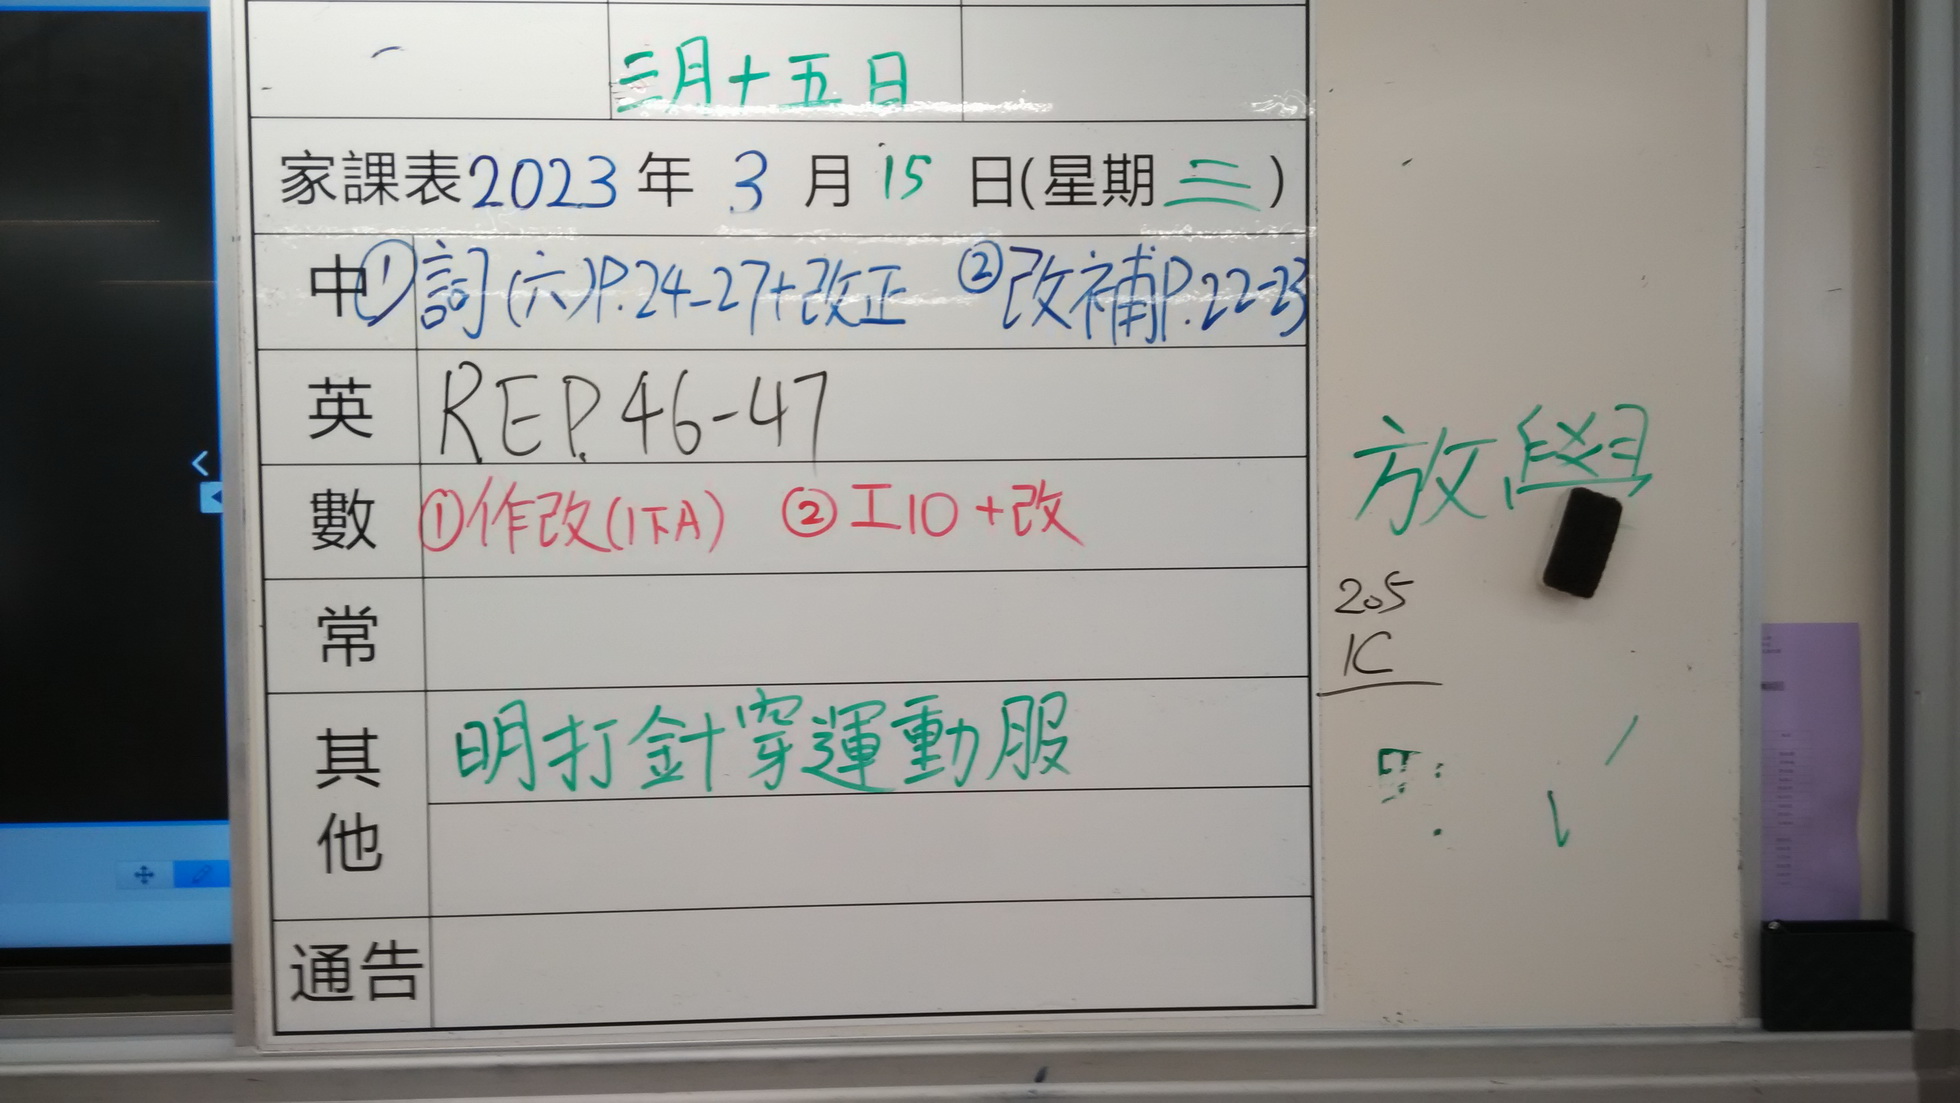 三月十五日
家課表2023年 3 月 15 日(星期三)
中 ①詞(六)P.24-27+改正 ②改補P.22-23
英 REP.46-47
數 ①作改(1下A) ②工10+改
常
其他 明打針穿運動服
通告
放學
205
1C